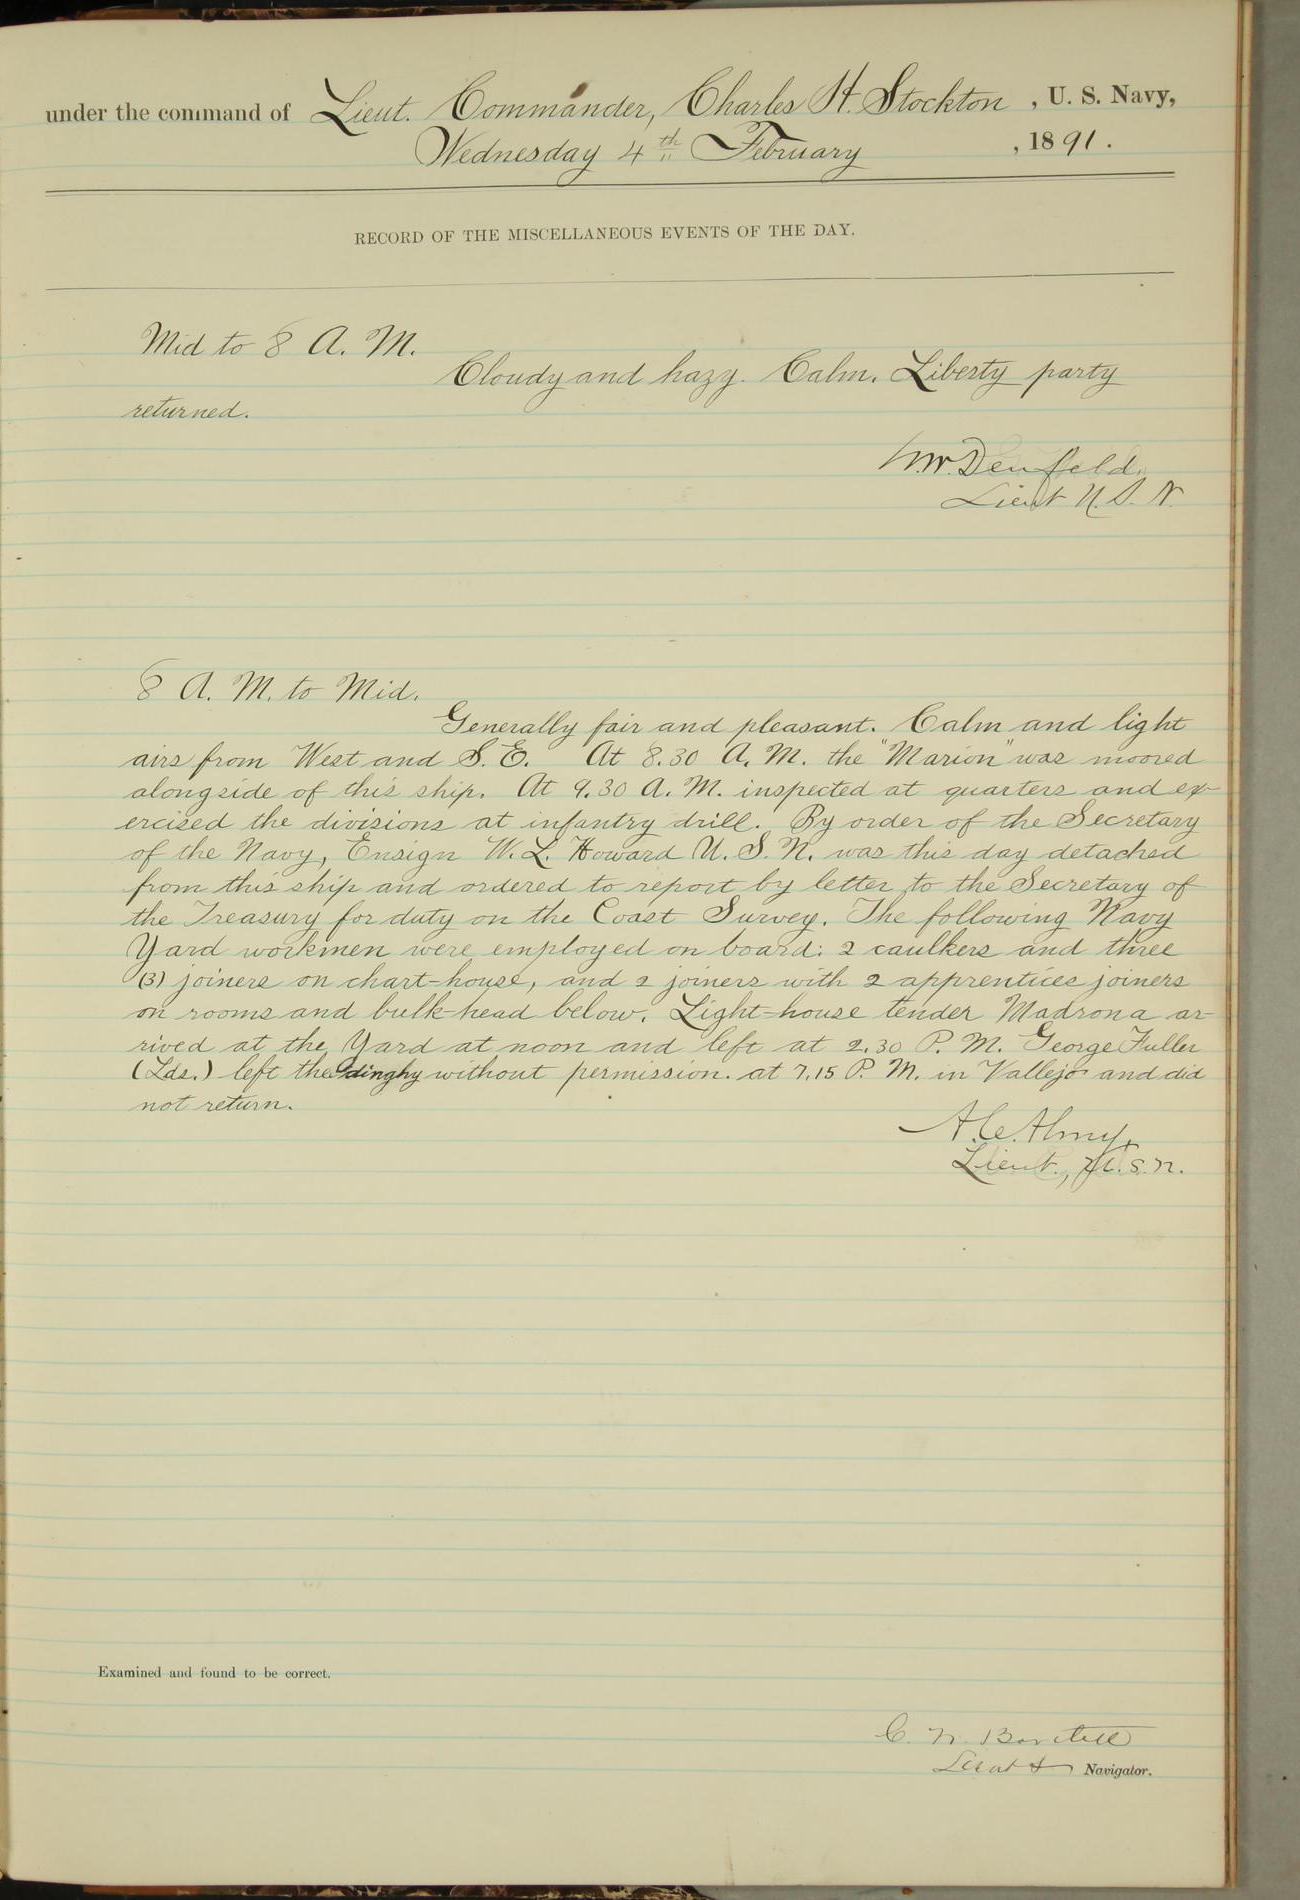 under the command of Lieut. Commander, Charles H. Stockton, U. S. Navy,
Wednesday 4th February, 1891.
RECORD OF THE MISCELLANEOUS EVENTS OF THE DAY.
Mid to 8 A. M.
Cloudy and hazy. Calm. Liberty party
returned.
Denfeld.
Lieut U. S. N.
8 A. M. to Mid.
Generally fair and pleasant. Calm and light
airs from West and S. E. At 8.30 A. M. the "Marion" was moored
alongside of this ship. At 9.30 A. M. inspected at quarters and ex-
ercised the divisions at infantry drill. By order of the Secretary
of the Navy, Ensign W. L. Howard U. S. N. was this day detached
from this ship and ordered to report by letter to the Secretary of
the Treasury for duty on the Coast Survey. The following Navy
Yard workmen were employed on board: 2 caulkers and three
(3) joiners on chart-house, and 2 joiners with 2 apprentices joiners
on rooms and bulk-head below. Light-house tender Madrona ar-
rived at the Yard at noon and left at 2.30 P. M. George Fuller
(Lds.) left the dinghy without permission. at 7.15 P. M. in Vallejo and did
not return.
A. C. Almy,
Lieut., U. S. N.
Examined and found to be correct.
C. W. Bartlett
Lieut & Navigator.